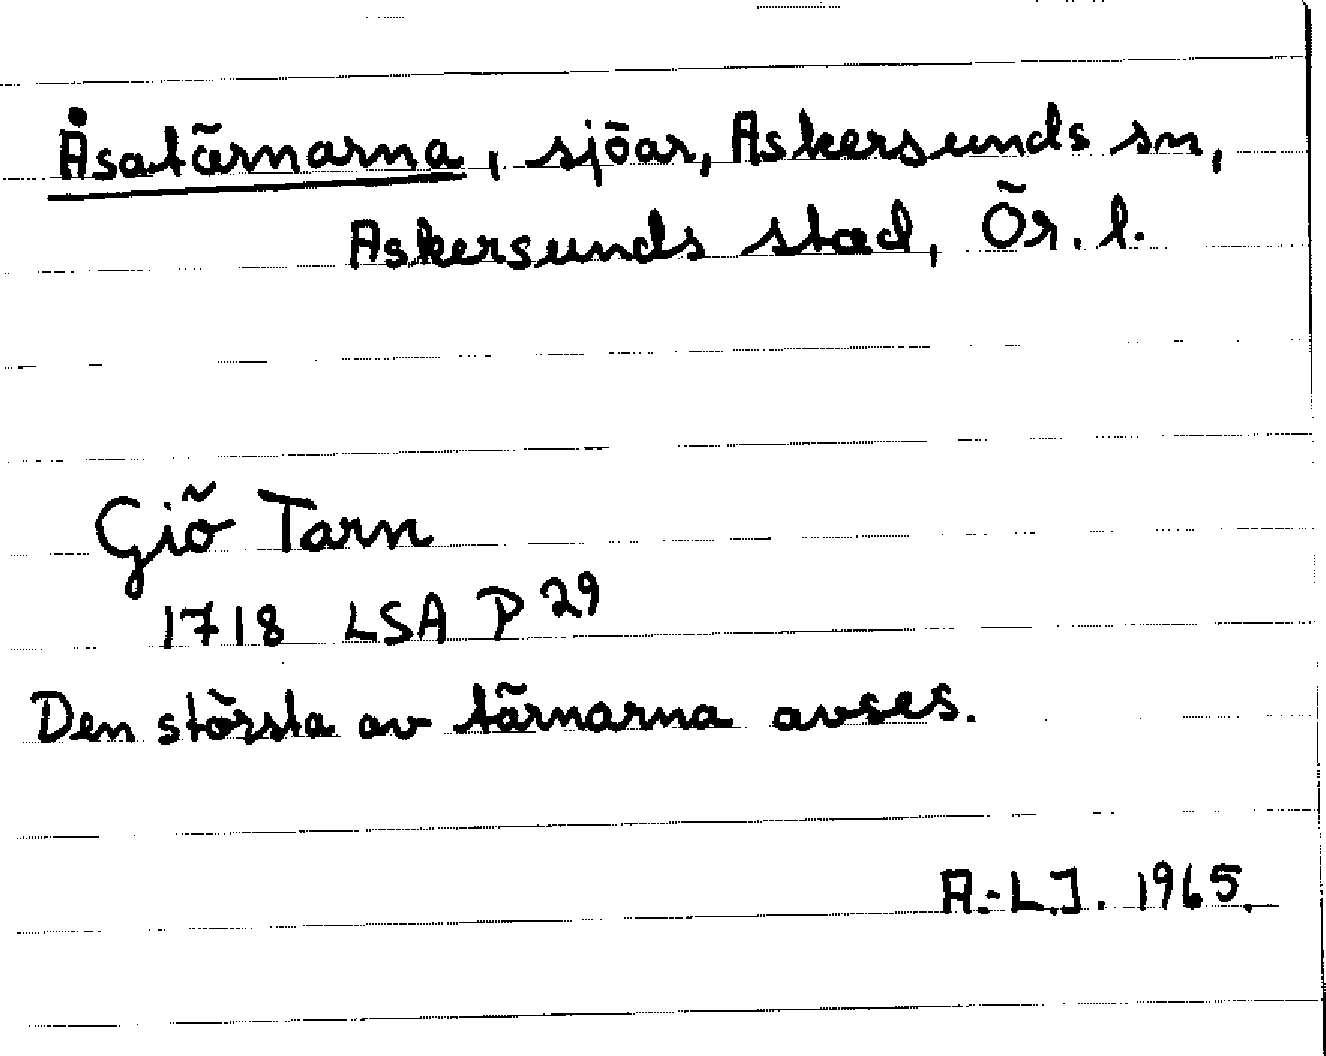 Åsatärnarna, sjöar, Askersunds sn,
Askersunds stad, Ör. l.
Giö Tarn
1718 LSA P 29
Den största av tärnarna avses.
A.-L.J. 1965.